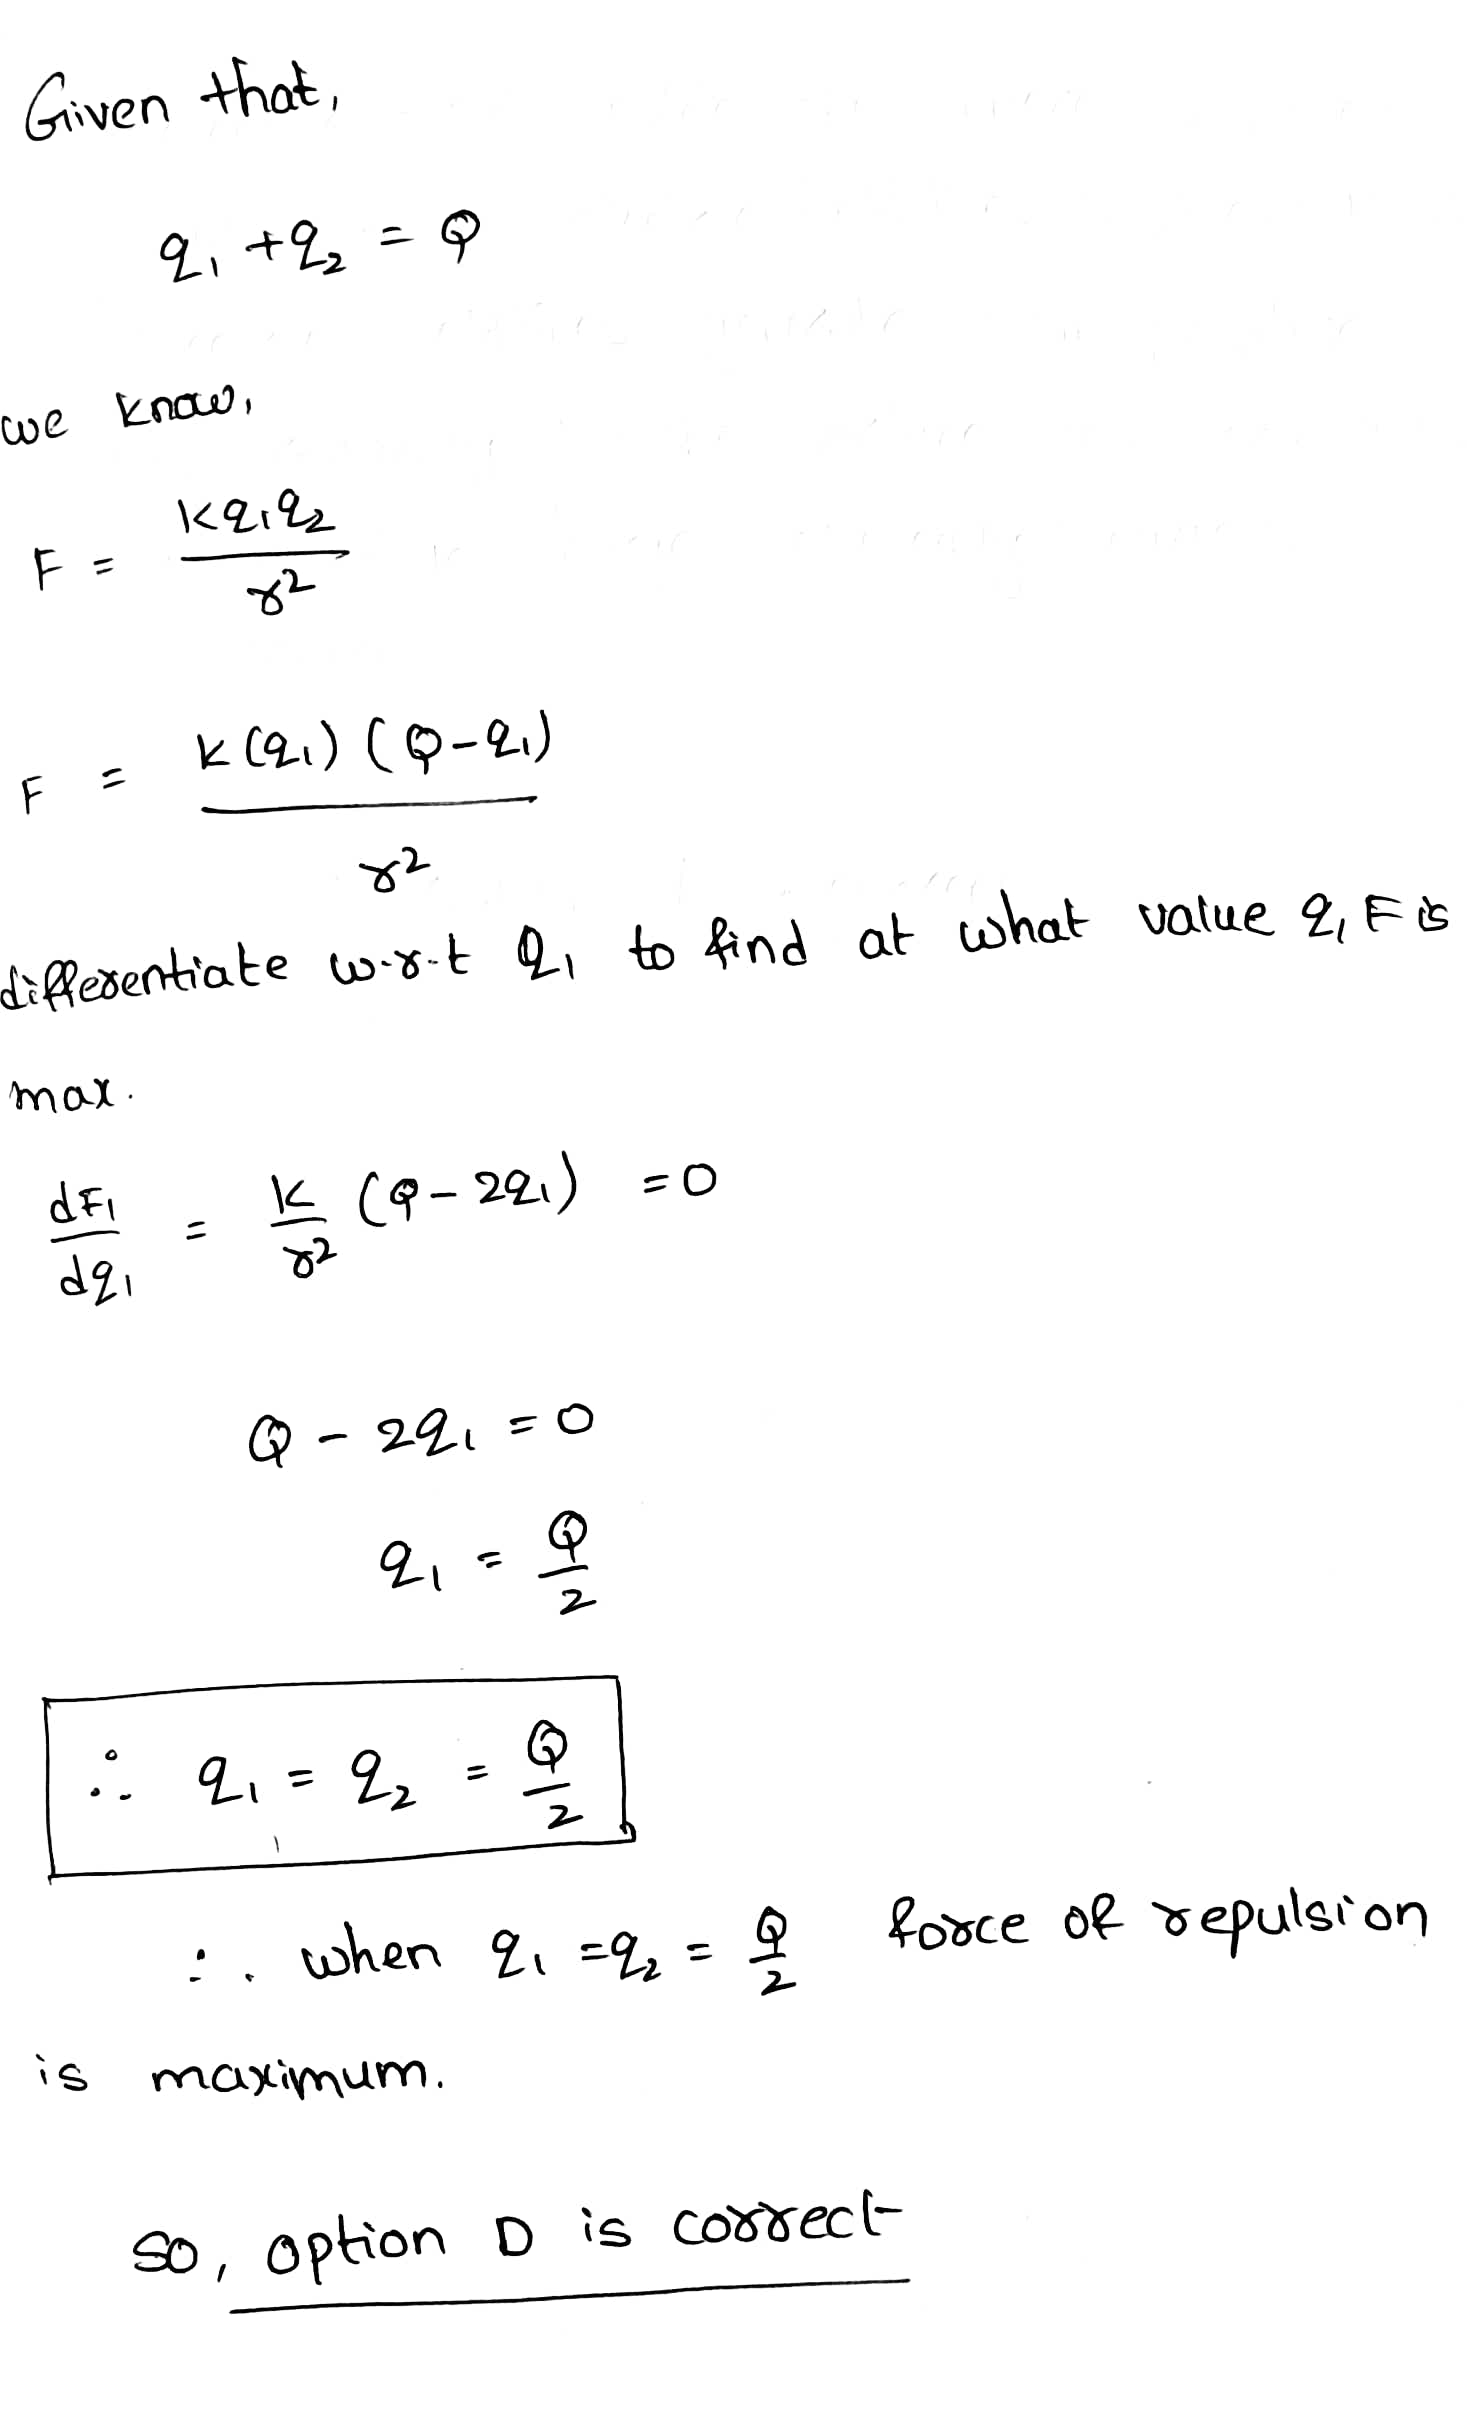 Given that,
q₁ + q₂ = Q
we know,
F = Kq₁q₂ / r²
F = K(q₁)(Q - q₁) / r²
differentiate w.r.t q₁ to find at what value q₁ F is
max.
dF₁/dq₁ = K/r² (Q - 2q₁) = 0
Q - 2q₁ = 0
q₁ = Q/2
∴ q₁ = q₂ = Q/2
∴ when q₁ = q₂ = Q/2 force of repulsion
is maximum.
So, option D is correct